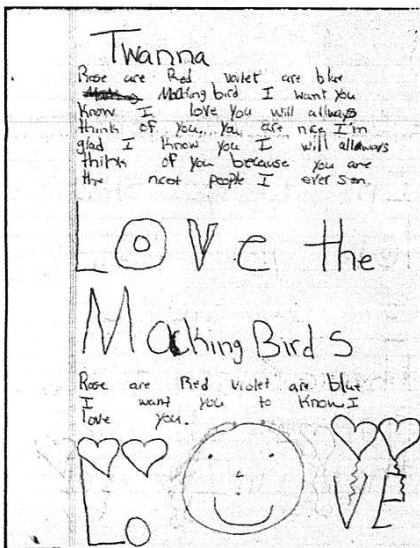 Twanna
Rose are Red voilet are blue
Mocking bird I want you
know I love you will allways
think of you, you are nice I'm
glad I know you I will allways
think of you because you are
the nicest people I ever son.
LOVE the
Mocking Birds
Rose are Red violet are blue
I want you to know I
love you.
LO VE